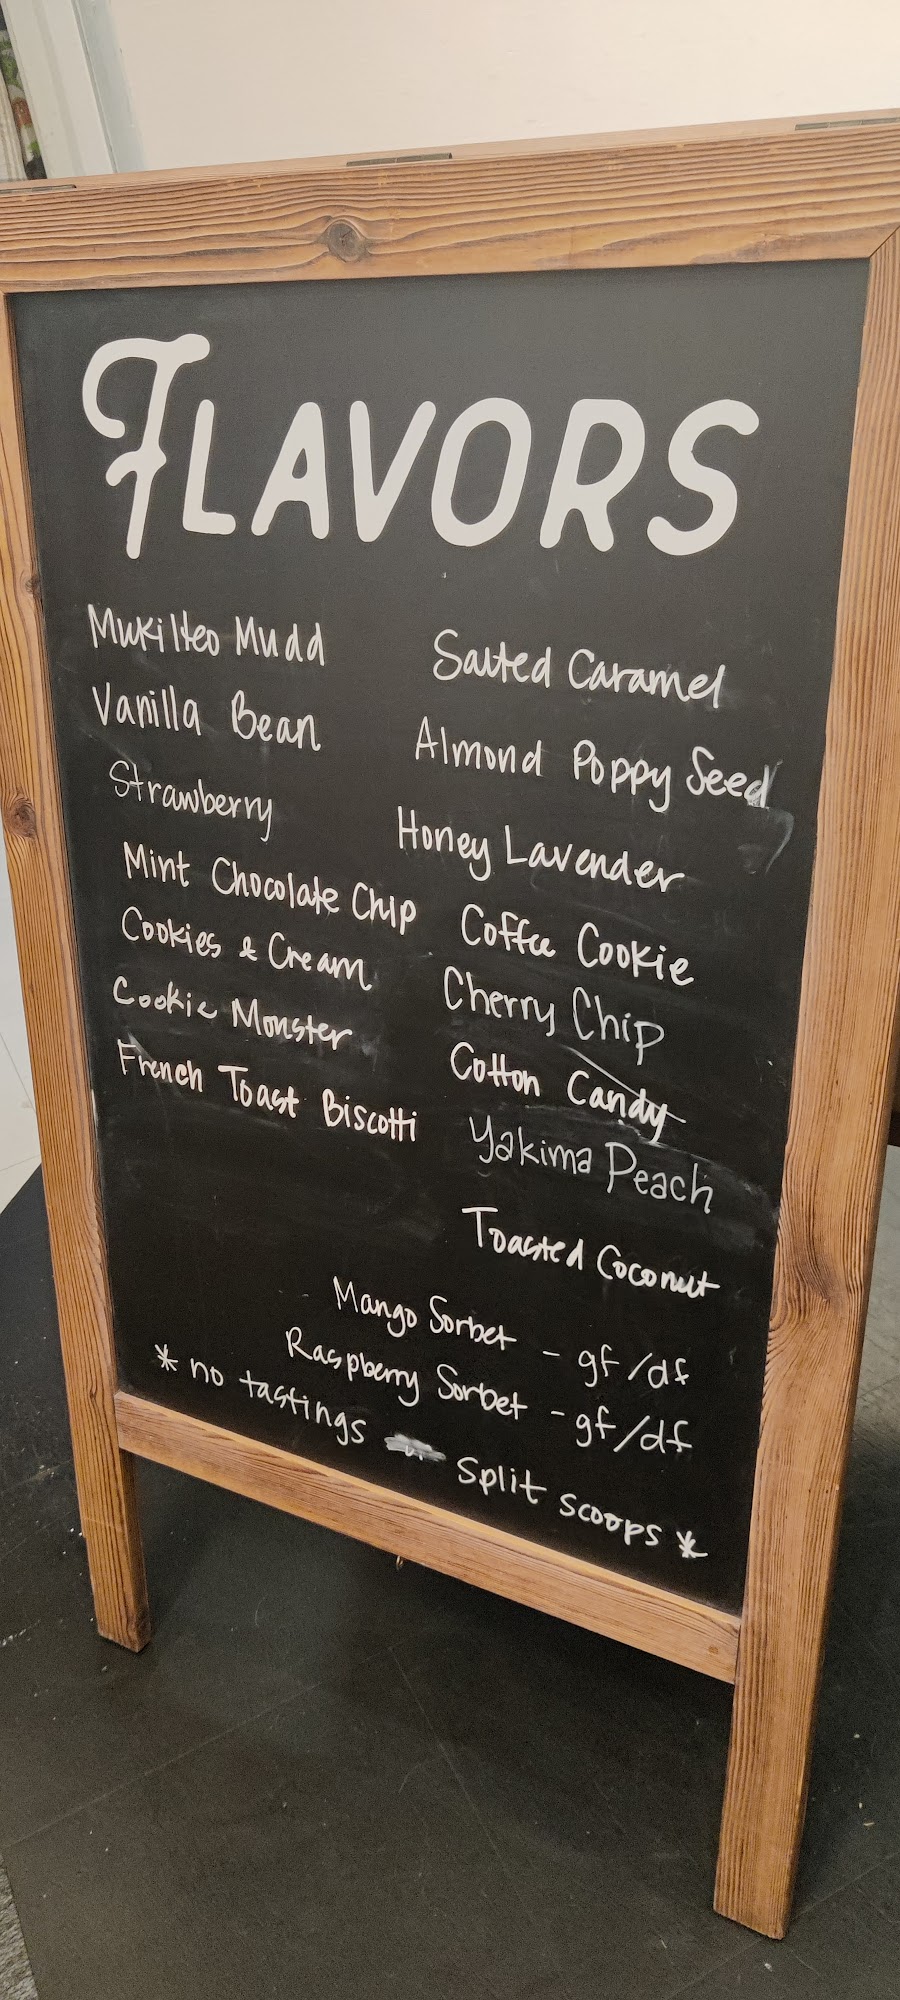 FLAVORS
Mukilteo Mudd
Vanilla Bean
Strawberry
Mint Chocolate Chip
Cookies & Cream
Cookie Monster
French Toast Biscotti
Salted Caramel
Almond Poppy Seed
Honey Lavender
Coffee Cookie
Cherry Chip
Cotton Candy
Yakima Peach
Toasted Coconut
Mango Sorbet - gf/df
Raspberry Sorbet - gf/df
* no tastings split scoops *